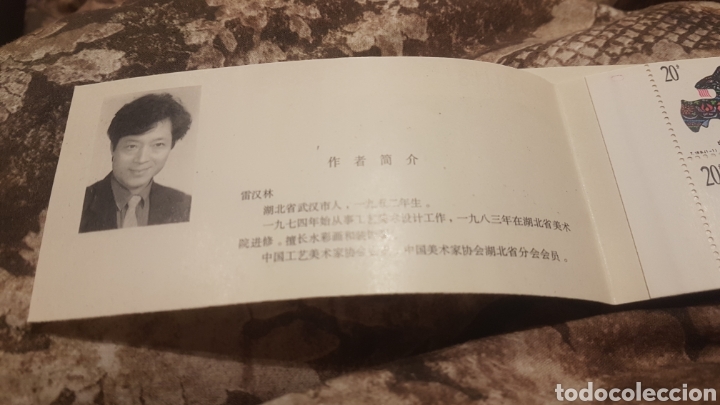 作者简介
雷汉林
湖北省武汉市人，一九五二年生。
一九七四年始从事工艺美术设计工作，一九八三年在湖北省美术
院进修，擅长水彩画和
中国工艺美术家协会会员，中国美术家协会湖北省分会会员。
20
20
todocoleccion
todocoleccion.net